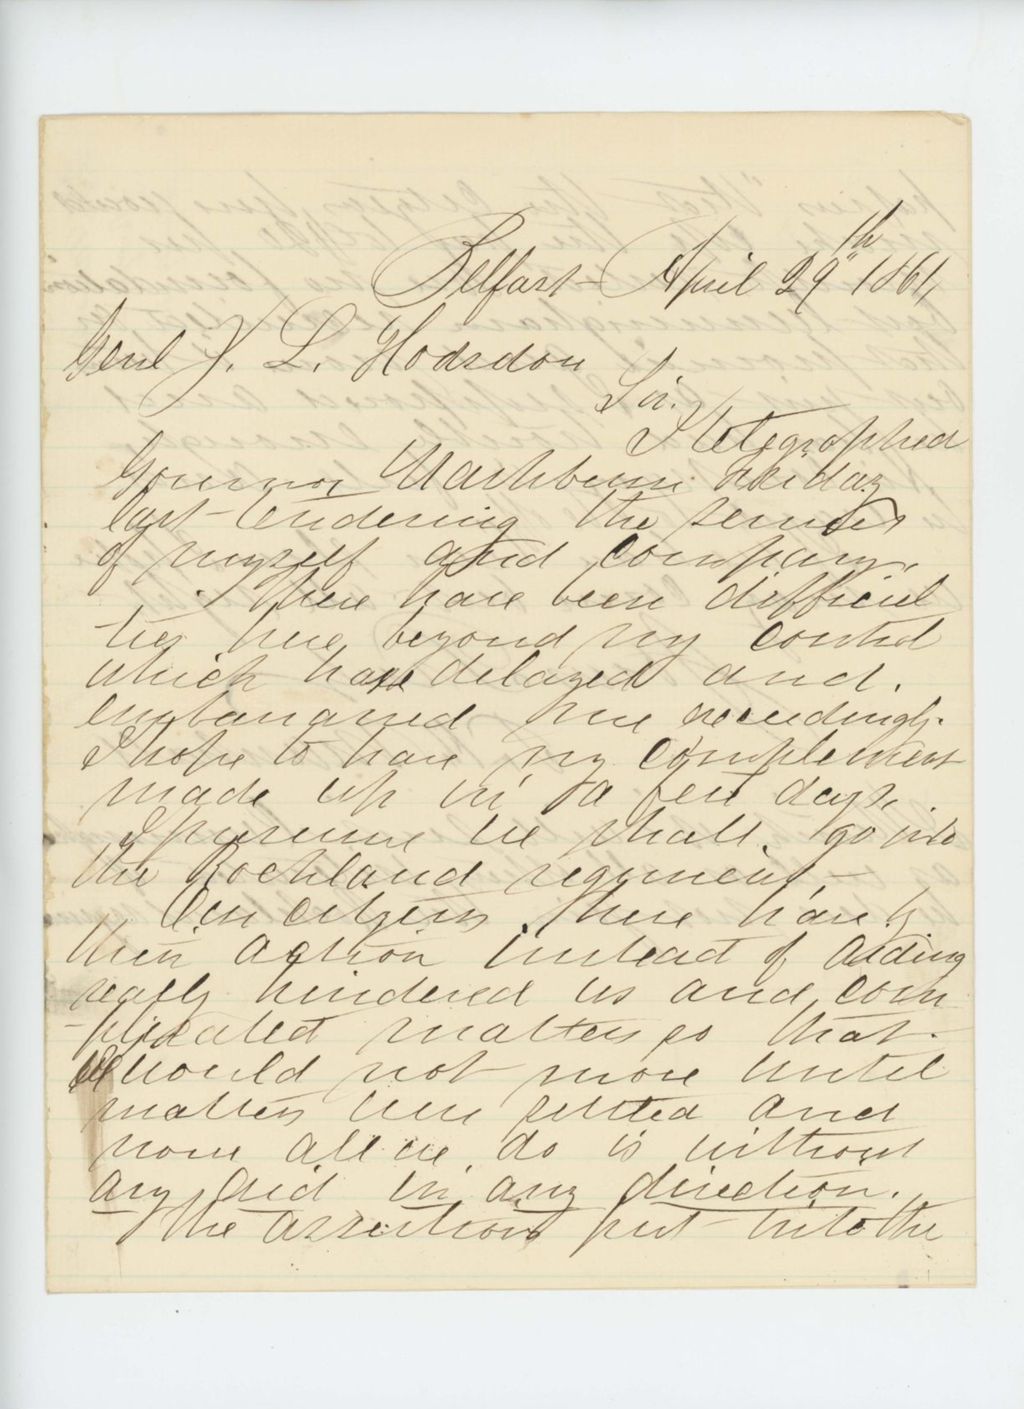 Belfast - April 29th 1861,
Genl J. L. Hodsdon
Sir.
I telegraphed
Governor Washburn Friday
last tendering the services
of myself and company.
There have been difficul
-ties here beyond my control
which have delayed and.
embarrassed me exceedingly.
I hope to have my complement
made up in a few days,
I presume we shall. go into
the Rockland regiment,
Our citizens here have by
their action instead of aiding
really hindered us and com
-plicated matters so that.
we would not move until
matters were settled and
now all we do is without
any aid in any direction.
The assertions put into the